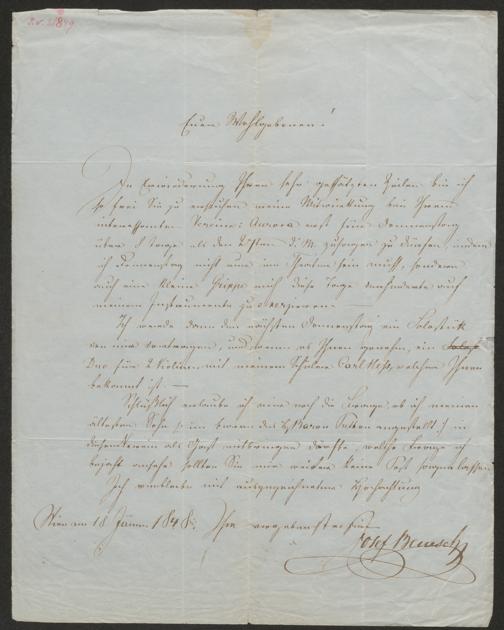 Euer Wohlgeboren!
In Erwiederung Ihrer sehr geschätzten Zeilen bin ich
so frei Sie zu ersuchen meine Mitwirkung bei Ihrem
interessanten Vereine: Aurora erst für Donnerstag
über 8 Tage als den 27ten d: M. zusagen zu dürfen, indem
ich Donnerstag nicht nur im Theater sein muß, sondern
auch eine kleine Grippe mich diese Tage verhinderte auf
meinem Instrumente zu exerzieren. —
Ich werde dann den nächsten Donnerstag ein Solostück
von mir vortragen, und wenn es Ihnen genehm, ein
Duo für 2 Violinen, mit meinem Schüler Carl Hofs, welcher Ihnen
bekannt ist. —
Schlüßlich erlaube ich mir noch die Frage, ob ich meinen
ältesten Sohn bei Baron angestellt in
diesen Verein als Gast mitbringen dürfte, welche Frage ich
bejaht ansehe sollten Sie mir weiter keine
Ich verbleibe mit ausgezeichneter Hochachtung
Wien am 18 Jänner 1848. Ihr ergebenster
Josef Benesch